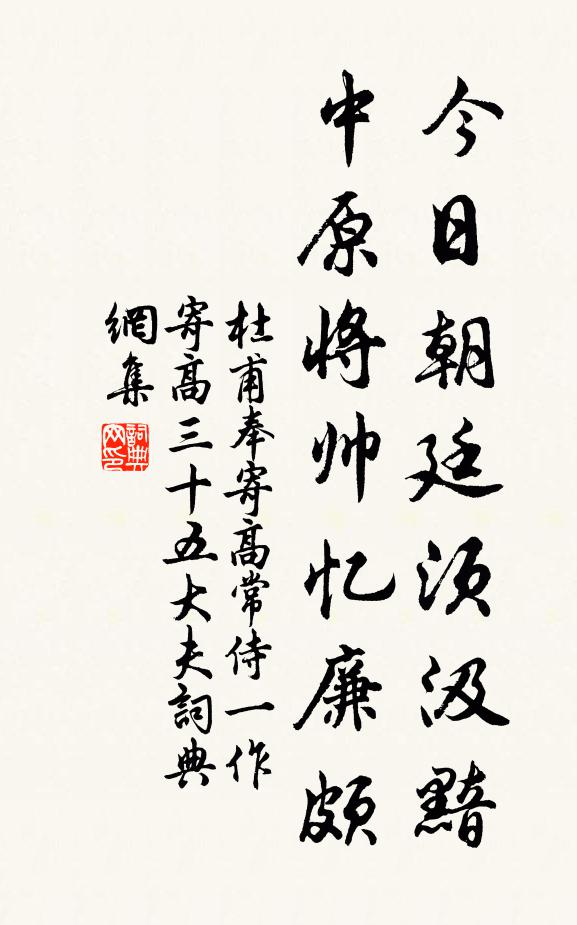 今日朝廷须汲黯
中原将帅忆廉颇
杜甫奉寄高常侍一作
寄高三十五大夫詞典
網集
詞典网印